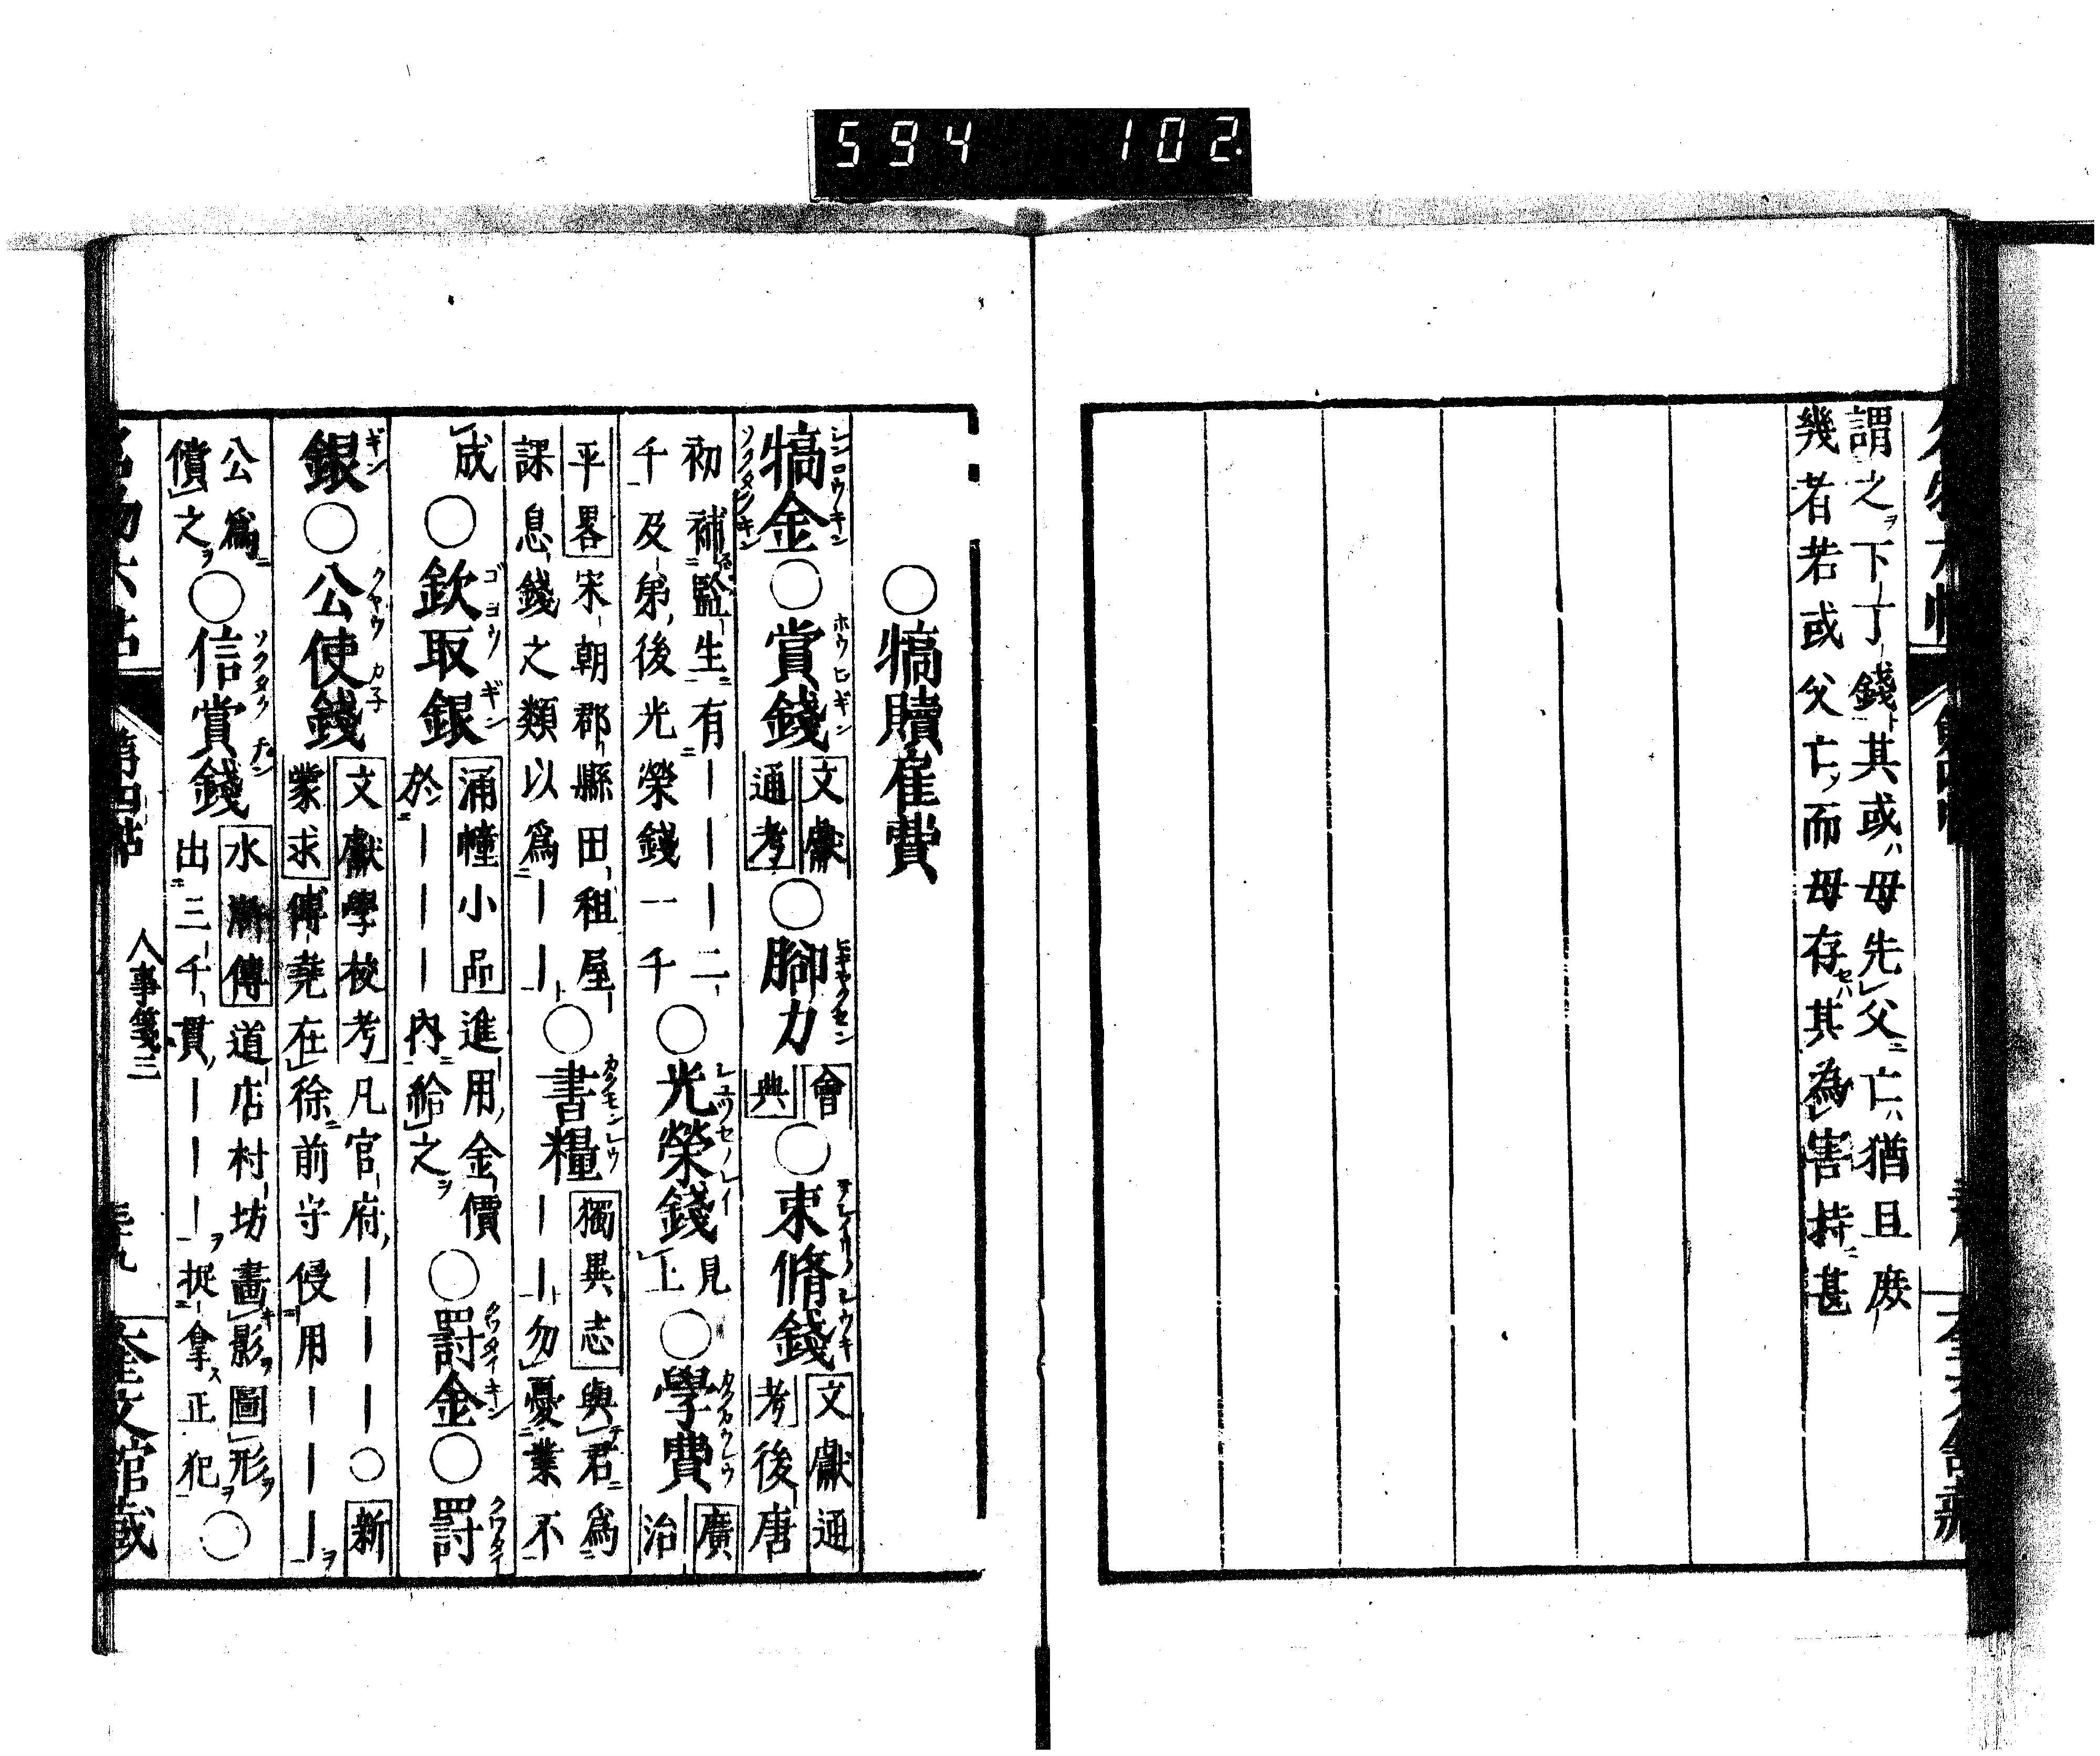 594 102
謂之下丁錢其或母先父亡猶且庶
幾者若或父亡而母存其為害持甚
○犒贖雇費
犒金○賞錢
文獻
通考
○腳力
會
典
○束脩錢
文獻通
考後唐
初補監生有｜｜｜二
千及第後光榮錢一千
○光榮錢
見
上
○學費
廣
治
平畧宋朝郡縣田租屋
課息錢之類以為｜｜
○書糧
獨異志與君為
｜｜勿憂業不
成
○欽取銀
涌幢小品進用金價
於｜｜｜內給之
○罰金○罰
銀○公使錢
文獻學校考凡官府｜｜｜○新
蒙求傅堯在徐前守侵用｜｜｜
公為
償之
○信賞錢
水滸傳道店村坊畫影圖形
出三千貫｜｜｜捉拿正犯
○
名物六帖 第四帖 人事箋三 三九 奎文館藏